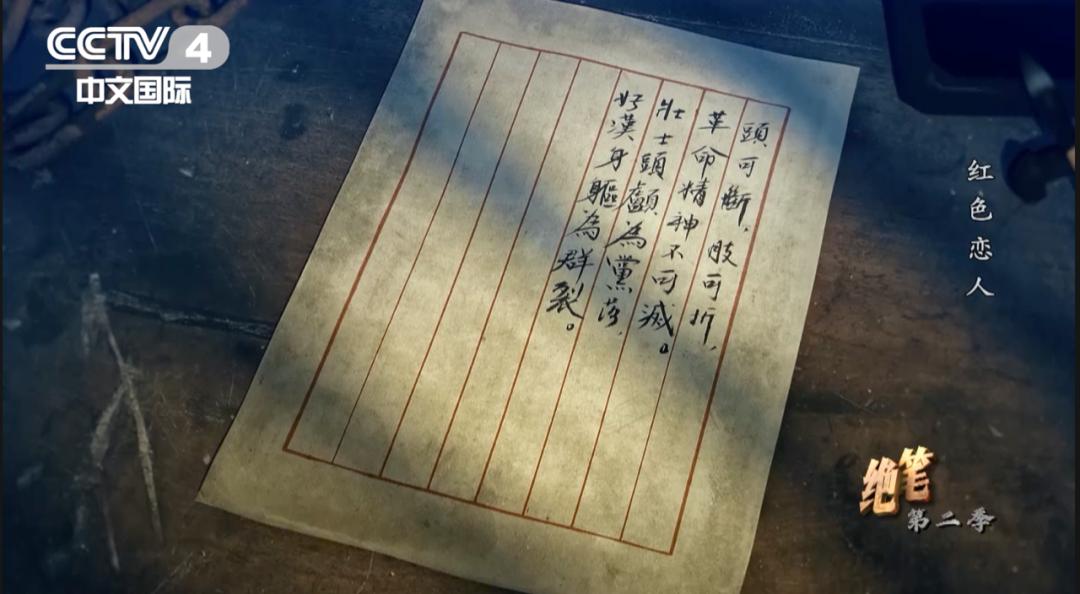 CCTV 4
中文国际
頭可斷，肢可折，
革命精神不可滅。
壯士頭顱為黨落，
好漢身軀為群裂。
红色恋人
绝笔
第二季